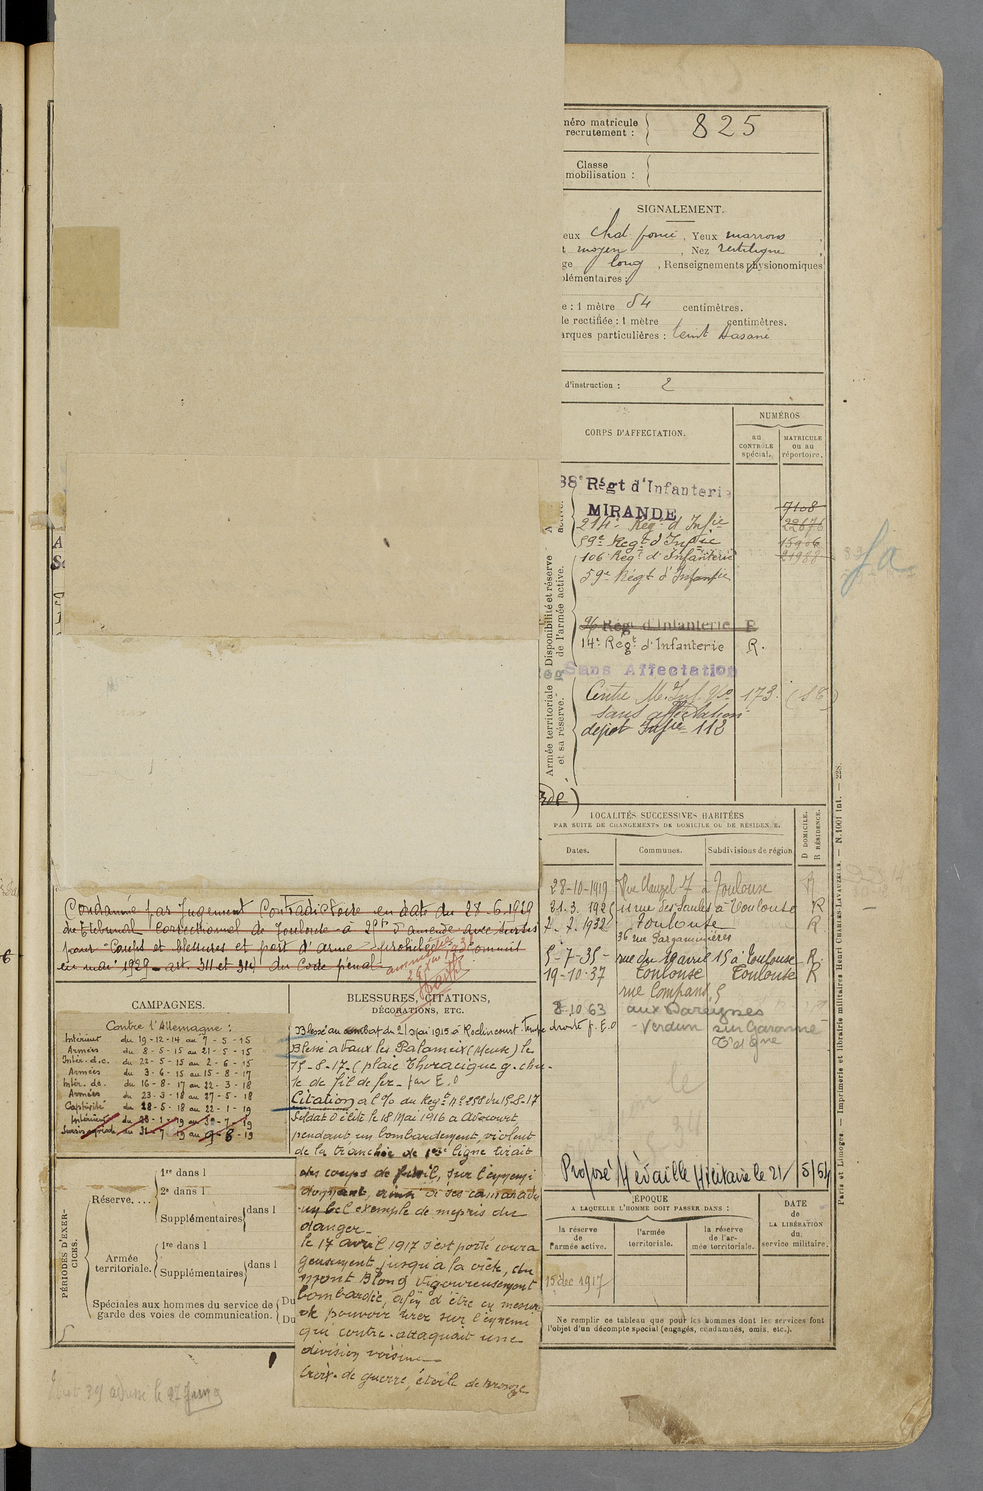 néro matricule
recrutement :
825
Classe
mobilisation :
SIGNALEMENT.
eux chat foncé, Yeux marrons
t moyen, Nez rectiligne
ge long, Renseignements physionomiques
plémentaires :
e : 1 mètre 84 centimètres.
le rectifiée : 1 mètre centimètres.
arques particulières : teint basané
d'instruction : 2
CORPS D'AFFECTATION.
NUMÉROS
au CONTRÔLE spécial.
MATRICULE ou au répertoire.
88e Régt d'Infanterie
MIRANDE
7108
214e Regt d'Infie
22676
59e Regt d'Infie
15906
106 Regt d'Infanterie
21988
59e Régt d'Infanfie
fa
96 Régt d'Infanterie R
14e Regt d'Infanterie R.
Sans Affectation
Centre M. Inf. No 173 (18)
sans affectation
dépot Infie 118
Disponibilité et réserve de l'armée active.
Armée territoriale et sa réserve.
LOCALITÉS SUCCESSIVES HABITÉES
PAR SUITE DE CHANGEMENTS DE DOMICILE OU DE RÉSIDENCE.
D DOMICILE.
R RÉSIDENCE.
Dates. Communes. Subdivisions de région.
28-10-1919 Rue Clauzel 7 à Toulouse R
31.3.192 11 rue des Saules à Toulouse R
7-7.1932 Toulouse R
36 rue Pargaminières
5-7-35- rue du 10 avril 15 à Toulouse R.
19-10-37 Toulouse Toulouse R
rue Compans, 5
8.10.63 aux Bareynes
- Verdun sur Garonne
T et Gne
Proposé Médaille Militaire le 21/5/54
ÉPOQUE
A LAQUELLE L'HOMME DOIT PASSER DANS :
la réserve de l'armée active.
l'armée territoriale.
la réserve de l'armée territoriale.
DATE de LA LIBÉRATION du service militaire.
15 dec 1917
Ne remplir ce tableau que pour les hommes dont les services font
l'objet d'un décompte spécial (engagés, condamnés, omis, etc.).
Condamné par Jugement Contradictoire en date du 28.6.1929
du tribunal Correctionnel de Toulouse à 25f d'amende avec sursis
pour "Coups et blessures et port d'arme prohibée" commis
en mai 1929 - art. 311 et 314 du Code pénal.
CAMPAGNES.
Contre l'Allemagne :
Intérieur du 19-12-14 au 7-5-15
Armées du 8-5-15 au 21-5-15
Intér.d.c. du 22-5-15 au 2-6-15
Armées du 3-6-15 au 15-8-17
Intér.dc. du 16-8-17 au 22-3-18
Armées du 23-3-18 au 27-5-18
Captivité du 28-5-18 au 22-1-19
Intérieur du 23-1-19 au 30-7-19
au 31-7-19 au 9-8-19
BLESSURES, CITATIONS,
DÉCORATIONS, ETC.
Blessé au combat du 21 Mai 1915 à Roclincourt. Tempe droite p. E.O
Blessé a Vaux les Palameix (Meuse) le
15-8-17 (plaie Thoracique g. chu-
te de fil de fer - par E.O
Citation a l'O. du Regt No 258 du 15-8-17
Soldat d'élite le 18 Mai 1916 a Avocourt
pendant un bombardement violent
de la tranchée de 1ère ligne tirait
des coups de fusil, sur l'ennemi
donnant, ainsi à ses camarades
un bel exemple de mépris du
danger -
le 17 avril 1917 s'est porté coura
geusement jusqu'à la crête, du
Mont Blond vigoureusement
bombardée, afin d'être en mesure
de pouvoir tirer sur l'ennemi
qui contre-attaquait une
division voisine -
Croix de guerre, étoile de bronze
PÉRIODES D'EXERCICES.
Réserve....
1re dans l
2e dans l
Supplémentaires dans l
Armée territoriale.
1re dans l
Supplémentaires dans l
Spéciales aux hommes du service de garde des voies de communication.
Du
Du
Paris et Limoges. — Imprimerie et librairie militaires Henri CHARLES-LAVAUZELLE. — N. 1001 Int. — 228.